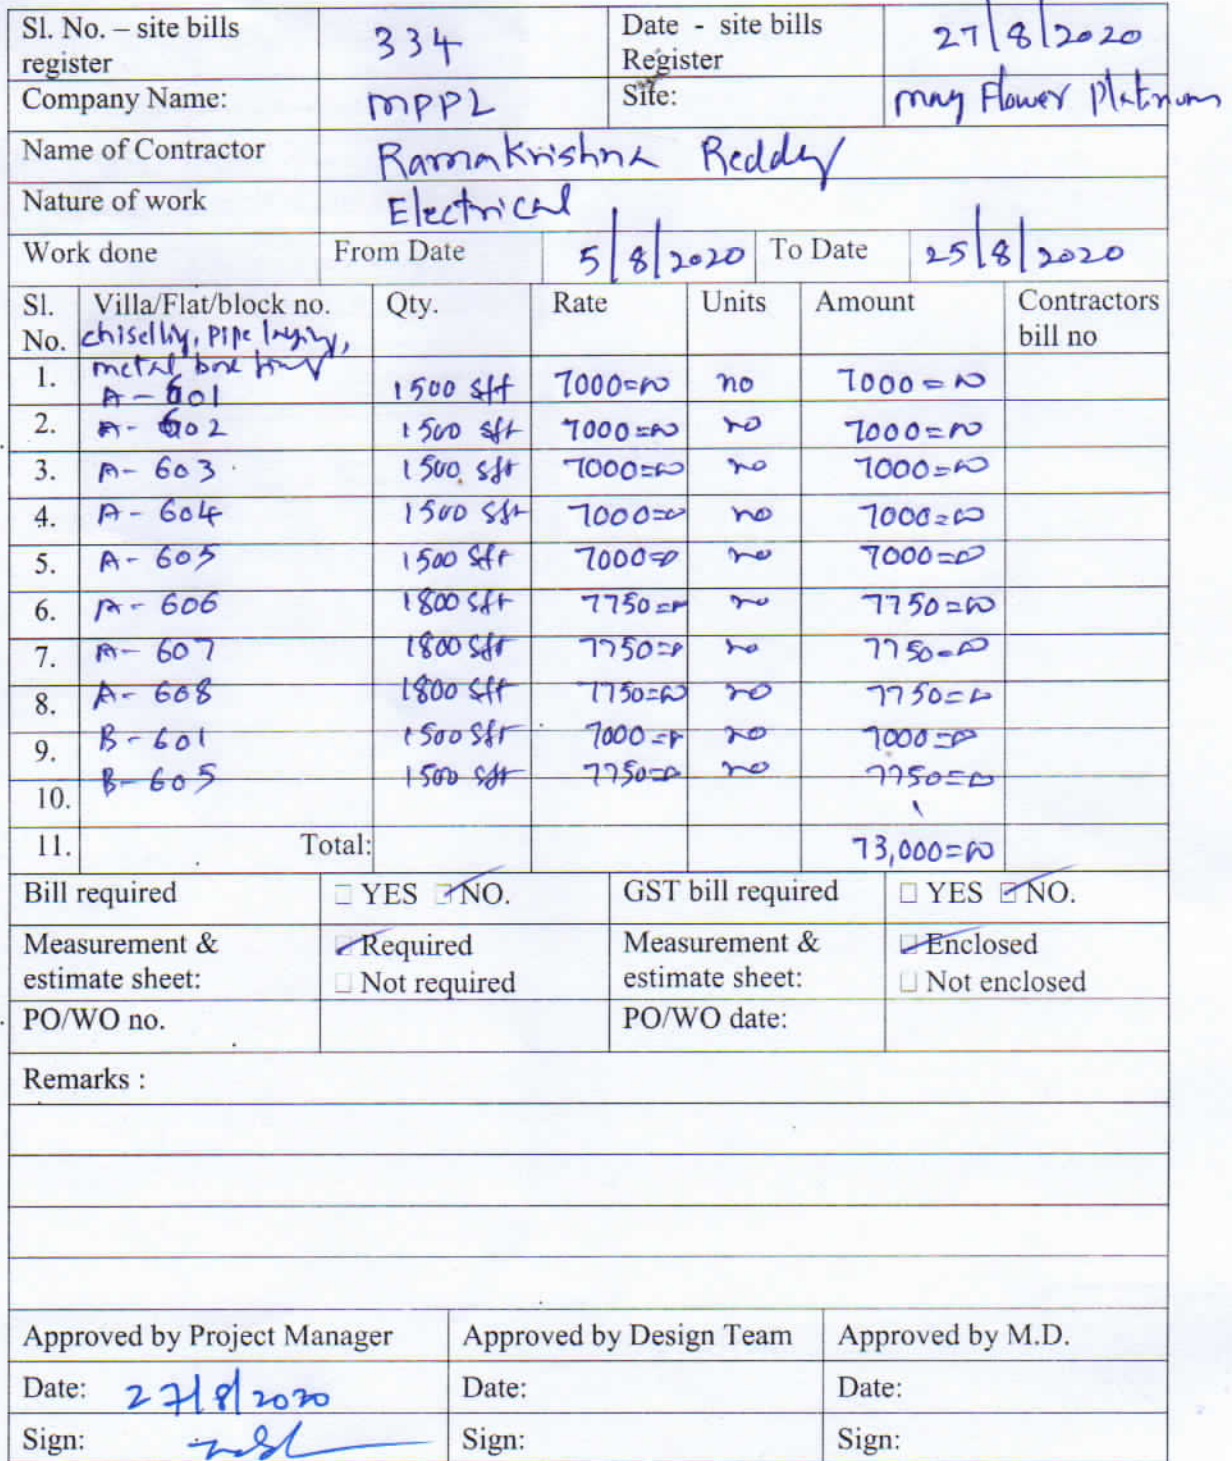 Sl. No. – site bills register 334 Date - site bills Register 27/8/2020
Company Name: MPPL Site: may Flower Platinum
Name of Contractor RamaKrishna Reddy
Nature of work Electrical
Work done From Date 5/8/2020 To Date 25/8/2020
Sl. No. Villa/Flat/block no. Qty. Rate Units Amount Contractors bill no
chiselling, pipe laying,
metal box
1. A-601 1500 sft 7000=00 no 7000=00
2. A-602 1500 sft 7000=00 no 7000=00
3. A-603 1500 sft 7000=00 no 7000=00
4. A-604 1500 sft 7000=00 no 7000=00
5. A-605 1500 sft 7000=00 no 7000=00
6. A-606 1800 sft 7750=00 no 7750=00
7. A-607 1800 sft 7750=00 no 7750=00
8. A-608 1800 sft 7750=00 no 7750=00
9. B-601 1500 sft 7000=00 no 7000=00
10. B-605 1500 sft 7750=00 no 7750=00
11. Total: 73,000=00
Bill required YES NO. GST bill required YES NO.
Measurement & estimate sheet: Required Not required Measurement & estimate sheet: Enclosed Not enclosed
PO/WO no. PO/WO date:
Remarks :
Approved by Project Manager Approved by Design Team Approved by M.D.
Date: 27/8/2020 Date: Date:
Sign: Sign: Sign: